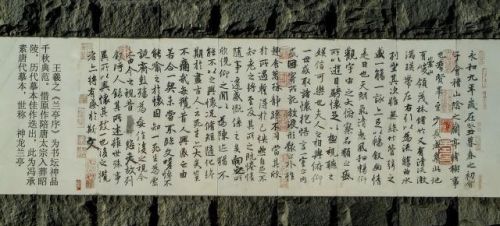 永和九年歲在癸丑暮春之初會
于會稽山陰之蘭亭脩禊事
也群賢畢至少長咸集此地
有崇山峻領茂林脩竹又有清流激
湍暎帶左右引以為流觴曲水
列坐其次雖無絲竹管弦之
盛一觴一詠亦足以暢敘幽情
是日也天朗氣清惠風和暢仰
觀宇宙之大俯察品類之盛
所以遊目騁懷足以極視聽之
娛信可樂也夫人之相與俯仰
一世或取諸懷抱悟言一室之內
或因寄所託放浪形骸之外雖
趣舍萬殊靜躁不同當其欣
於所遇蹔得於己怏然自足不
知老之將至及其所之既惓情
隨事遷感慨係之矣向之所
欣俛仰之閒以為陳迹猶不
能不以之興懷況脩短隨化終
期於盡古人云死生亦大矣豈
不痛哉每攬昔人興感之由
若合一契未嘗不臨文嗟悼不
能喻之於懷固知一死生為虛
誕齊彭殤為妄作後之視今
亦由今之視昔悲夫故列
敘時人錄其所述雖世殊事
異所以興懷其致一也後之攬
者亦將有感於斯文
王羲之《兰亭序》为书坛神品
千秋典范。惜原作陪唐太宗入葬昭
陵，历代摹本佳作迭出，此为冯承
素唐代摹本，世称 神龙兰亭